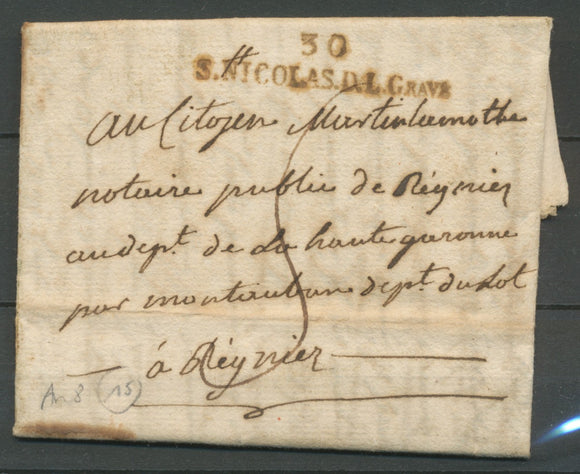 30
S.NICOLAS.D.L.GRAVE
au Citoyen Martinlamothe
notaire public de Réynier
au dept. de La haute garonne
par montauban dept. du Lot
à Réynier
5
An 8 (15)